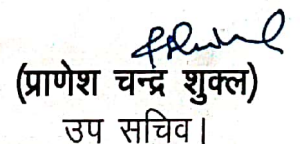 (प्राणेश चन्द्र शुक्ल)
उप सचिव।